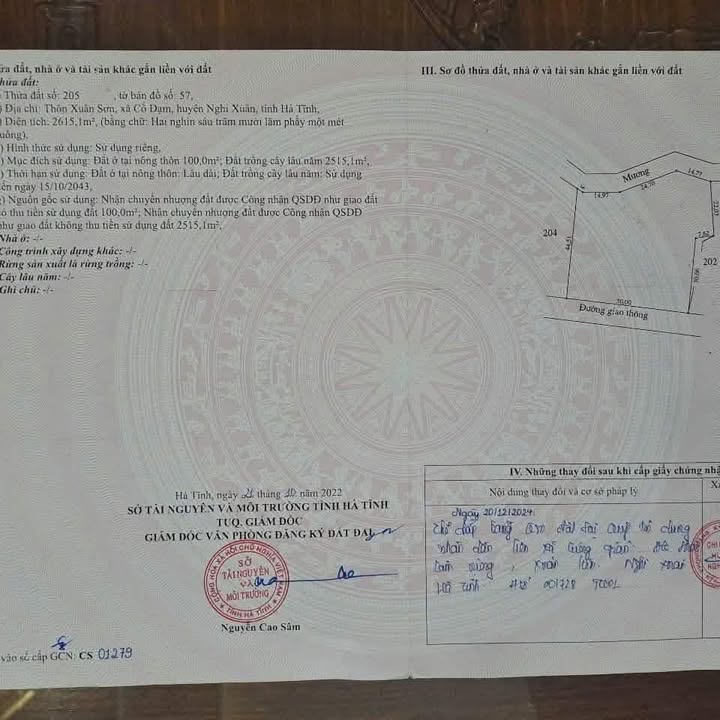 ửa đất, nhà ở và tài sản khác gắn liền với đất
hửa đất:
Thửa đất số: 205 , tờ bản đồ số: 57,
) Địa chỉ: Thôn Xuân Sơn, xã Cổ Đạm, huyện Nghi Xuân, tỉnh Hà Tĩnh,
) Diện tích: 2615,1m², (bằng chữ: Hai nghìn sáu trăm mười lăm phẩy một mét
uông),
) Hình thức sử dụng: Sử dụng riêng,
) Mục đích sử dụng: Đất ở tại nông thôn 100,0m²; Đất trồng cây lâu năm 2515,1m²,
) Thời hạn sử dụng: Đất ở tại nông thôn: Lâu dài; Đất trồng cây lâu năm: Sử dụng
ến ngày 15/10/2043,
g) Nguồn gốc sử dụng: Nhận chuyển nhượng đất được Công nhận QSDĐ như giao đất
ó thu tiền sử dụng đất 100,0m²; Nhận chuyển nhượng đất được Công nhận QSDĐ
như giao đất không thu tiền sử dụng đất 2515,1m²,
Nhà ở: -/-
Công trình xây dựng khác: -/-
Rừng sản xuất là rừng trồng: -/-
Cây lâu năm: -/-
Ghi chú: -/-
Hà Tĩnh, ngày 21 tháng 10 năm 2022
SỞ TÀI NGUYÊN VÀ MÔI TRƯỜNG TỈNH HÀ TĨNH
TUQ. GIÁM ĐỐC
GIÁM ĐỐC VĂN PHÒNG ĐĂNG KÝ ĐẤT ĐAI
CỘNG HÒA XÃ HỘI CHỦ NGHĨA VIỆT NAM
SỞ
TÀI NGUYÊN
VÀ
MÔI TRƯỜNG
TỈNH HÀ TĨNH
Nguyễn Cao Sâm
vào sổ cấp GCN: CS 01279
III. Sơ đồ thửa đất, nhà ở và tài sản khác gắn liền với đất
Mương
14.95
24.70
14.77
204
44.51
7.82
202
30.00
Đường giao thông
IV. Những thay đổi sau khi cấp giấy chứng nhậ
Nội dung thay đổi và cơ sở pháp lý
Ngày 20/12/2024
Thế chấp bằng
nhân dân
Hà Tĩnh